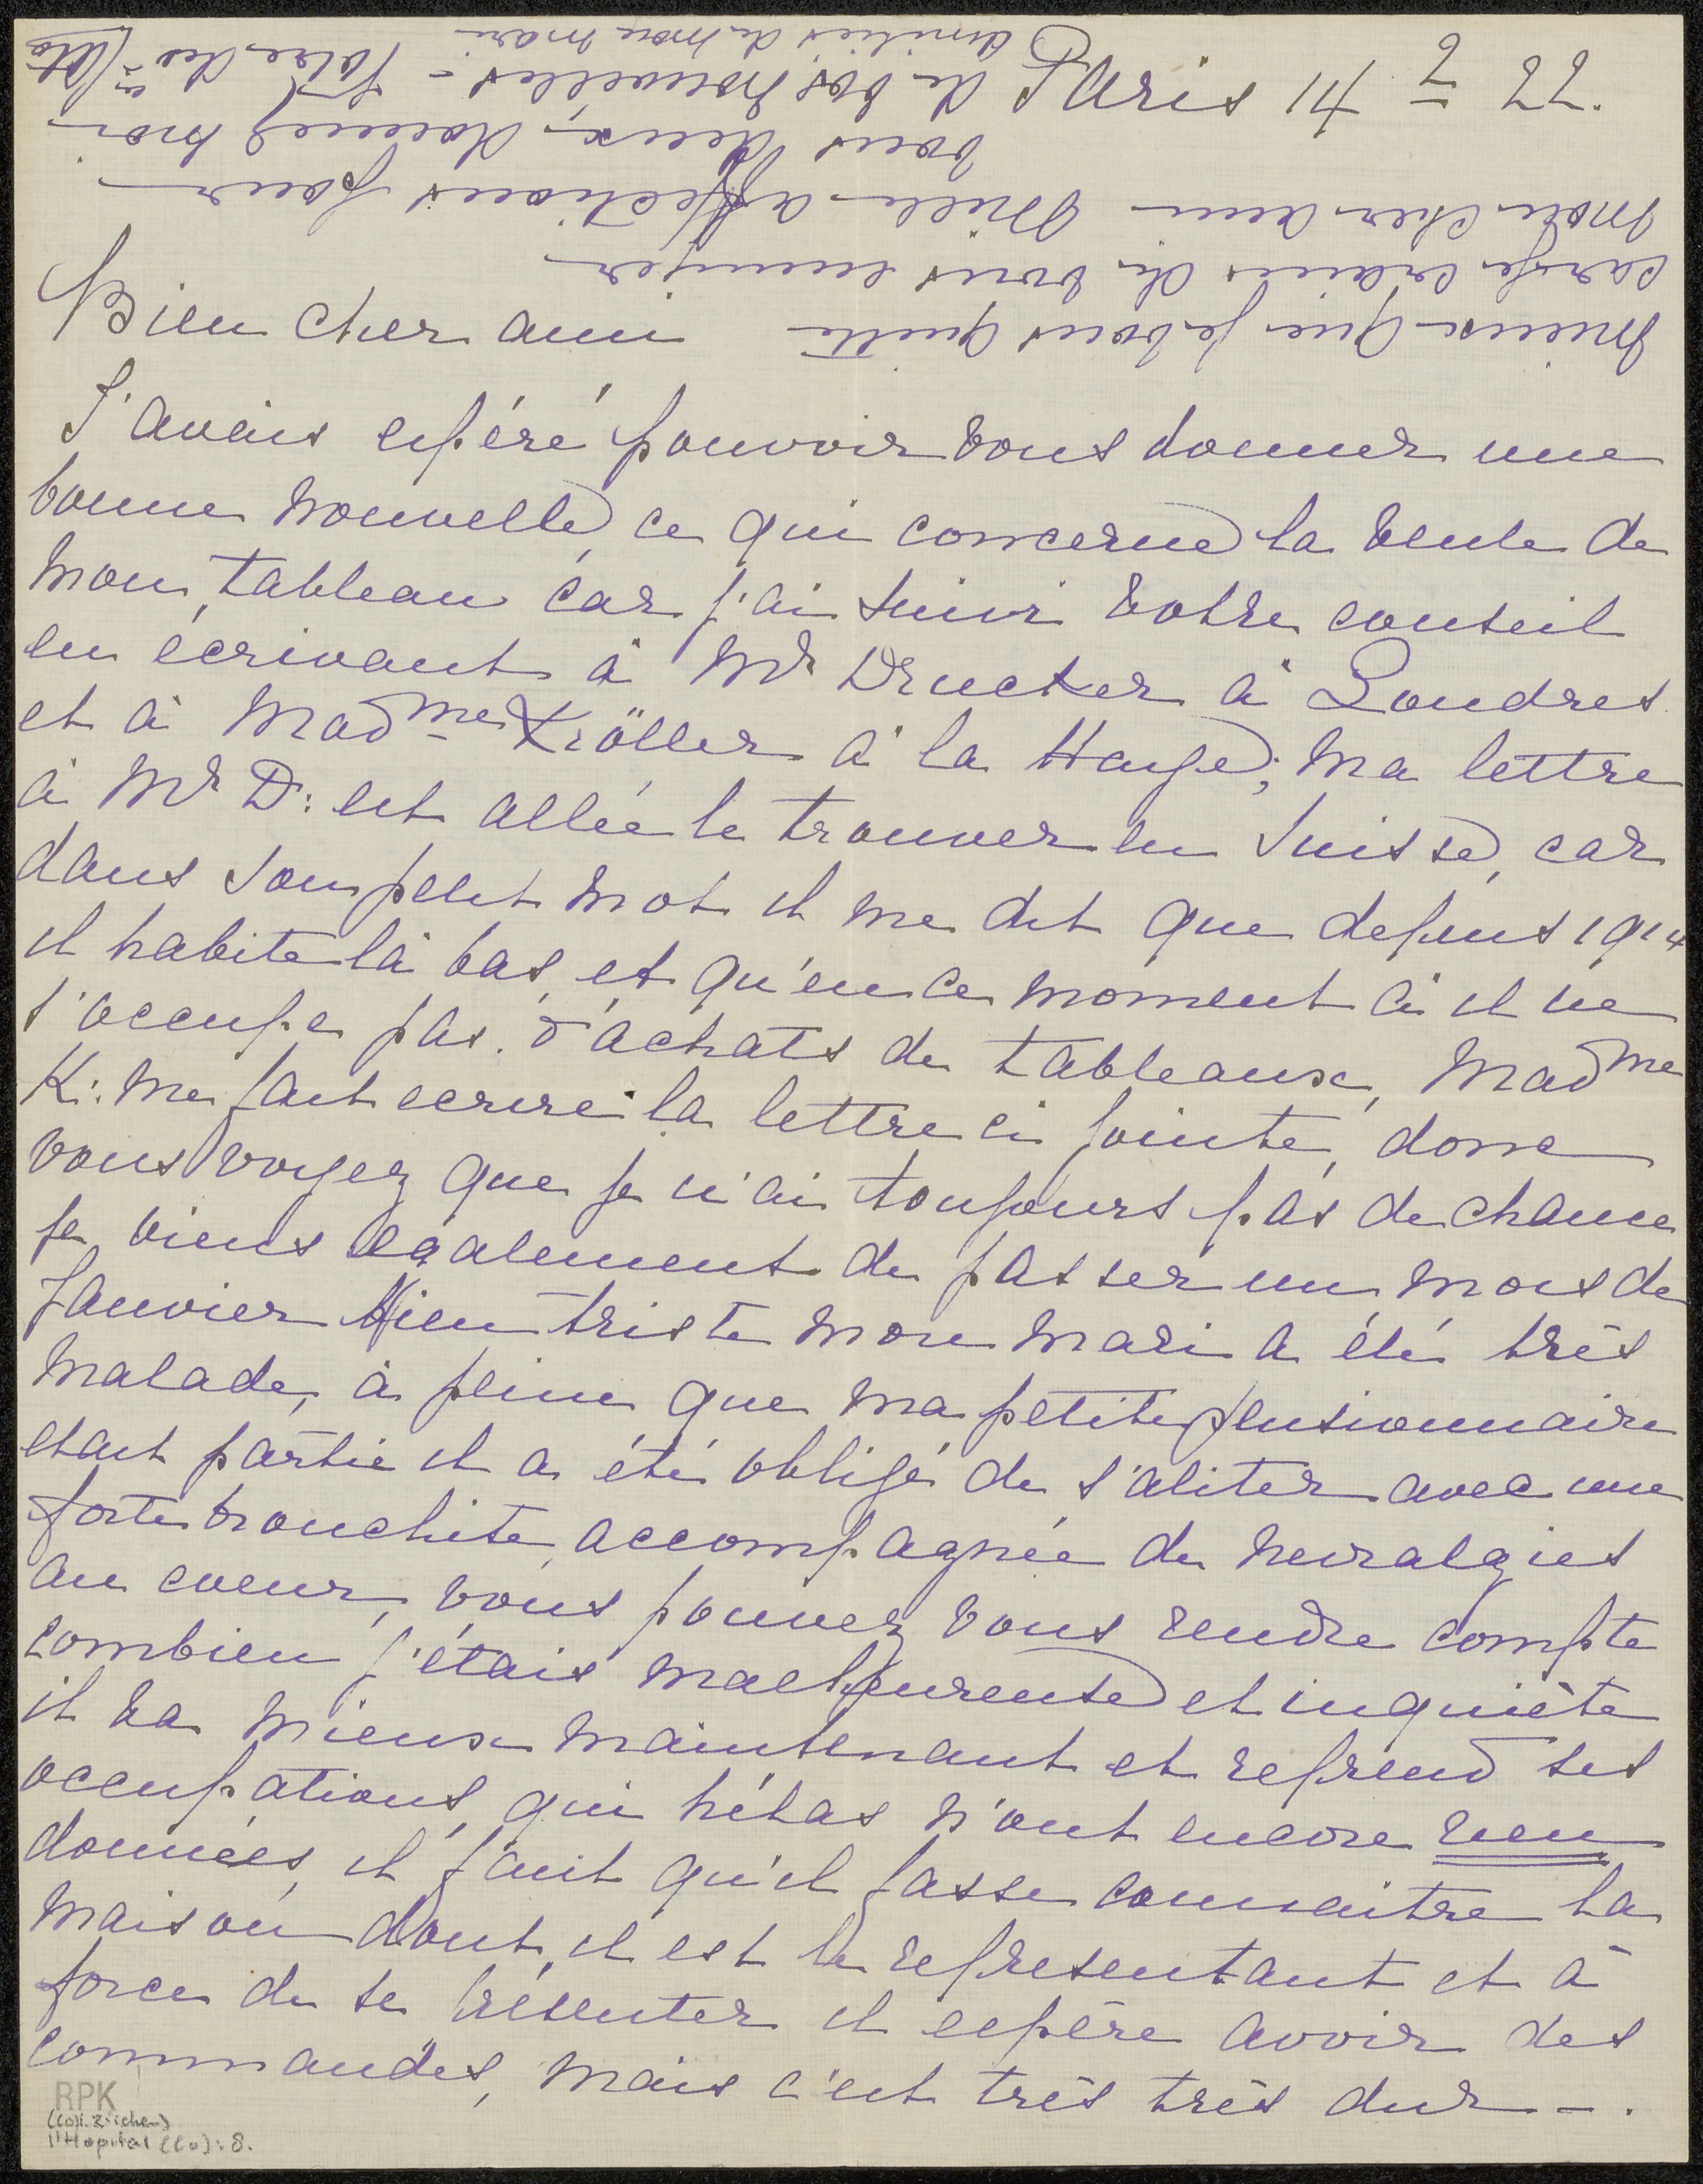 Paris 11 - 2 22.
Bien cher ami
J'avais espéré pouvoir vous donner une
bonne nouvelle, ce qui concerne la vente de
mon tableau car j'ai suivi votre conseil
en écrivant à Mr Drucker à Londres
et à Madme Kröller à la Haye; ma lettre
à Mr D: est allée le trouver en Suisse, car
dans son petit mot il me dit que depuis 1914
il habite là bas, et qu'en ce moment ci il ne
s'occupe pas d'achats de tableaux, Madme
K: me fait ecrire la lettre ci jointe, donc
vous voyez que je n'ai toujours pas de chance
je viens également de passer un mois de
Janvier bien triste mon mari a été très
malade, à peine que ma petite pensionnaire
etait partie il a été obligé de s'aliter avec une
forte bronchite, accompagnée de nevralgies
au coeur, vous pouvez vous rendre compte
combien j'étais malheureuse et inquiète
il va mieux maintenant et reprend ses
occupations, qui hélas n'ont encore rien
données, il faut qu'il fasse connaitre la
maison dont il est le representant et à
force de se présenter il espère avoir des
commandes, mais c'est très très dur -.
mieux que je vous quitte
car je crains de vous ennuyer
mon cher ami - Mille affections pour
vous deux, donnez moi
de vos nouvelles - Votre dev
amitiés de mon mari
RPK
(Coll. Zilcken)
l'Hopital (Co): 8.